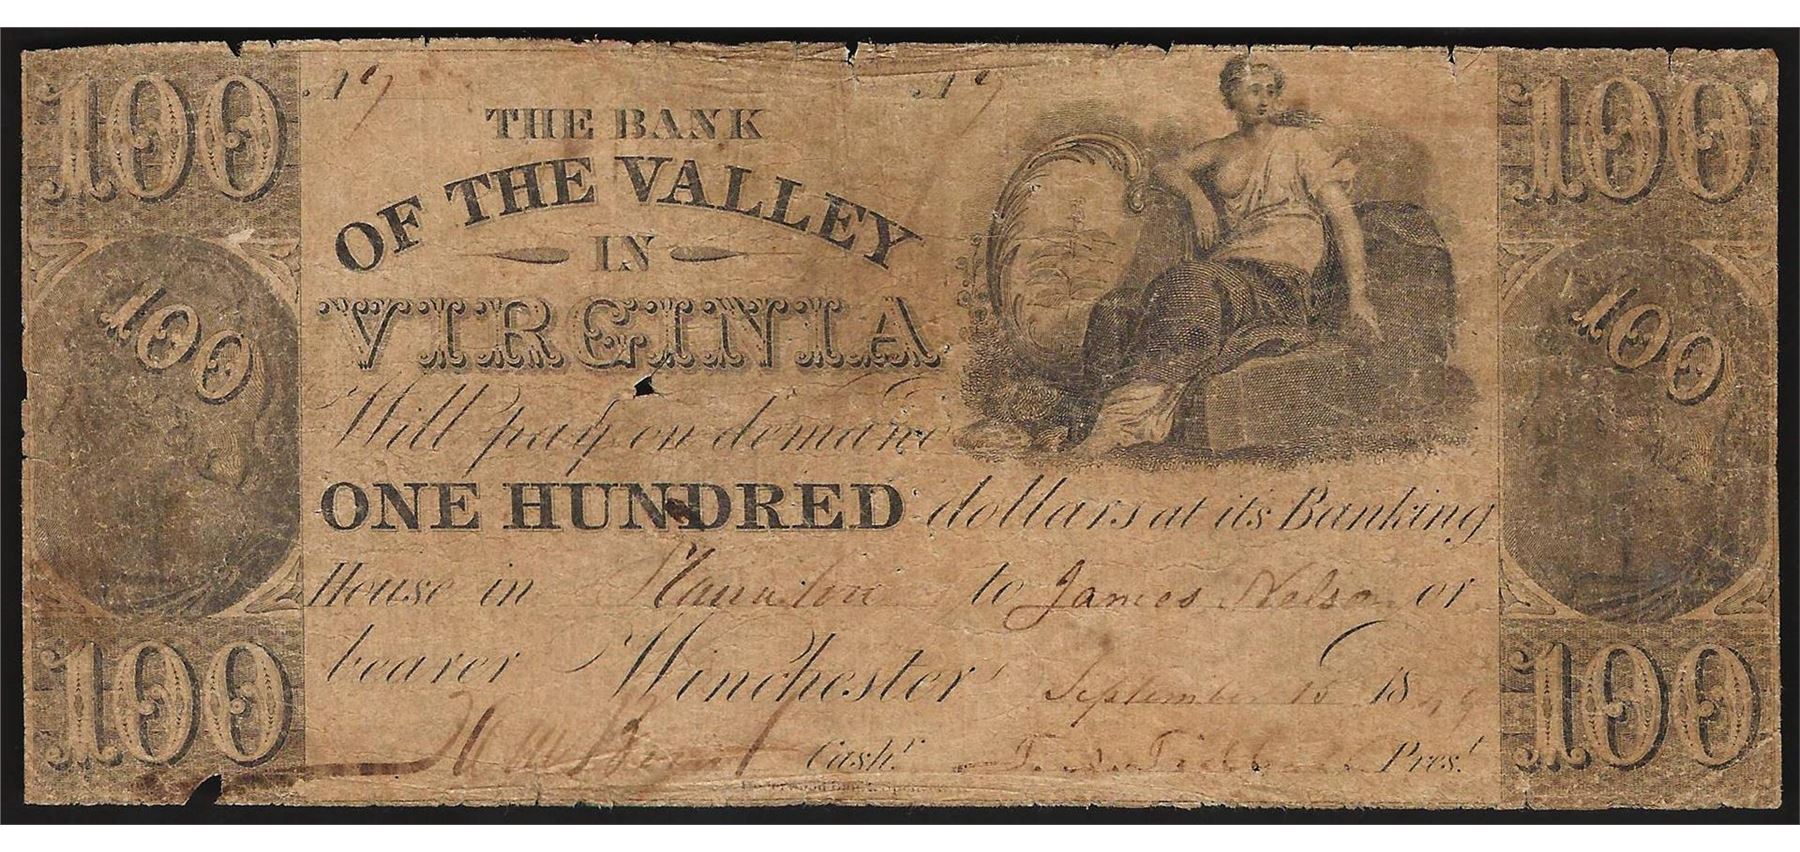 100 100
No 9 No 9
THE BANK
OF THE VALLEY
IN
VIRGINIA
100 100
Will pay on demand
ONE HUNDRED dollars at its Banking
House in to James Nelson or
bearer Winchester September 15 1849
Cashr. Prest.
100 100